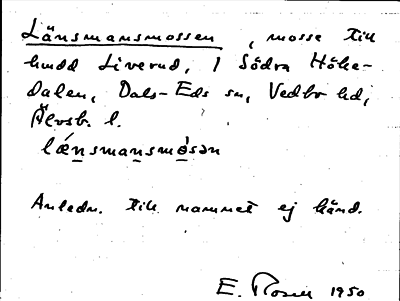 Länsmansmossen, mosse till
hmdd Liverud, 1 Södra Höke-
dalen, Dals-Eds sn, Vedbo hd,
Älvsb. l.
lǽnsmansmòsən
Anledn. till namnet ej känd.
E. Rosell 1950